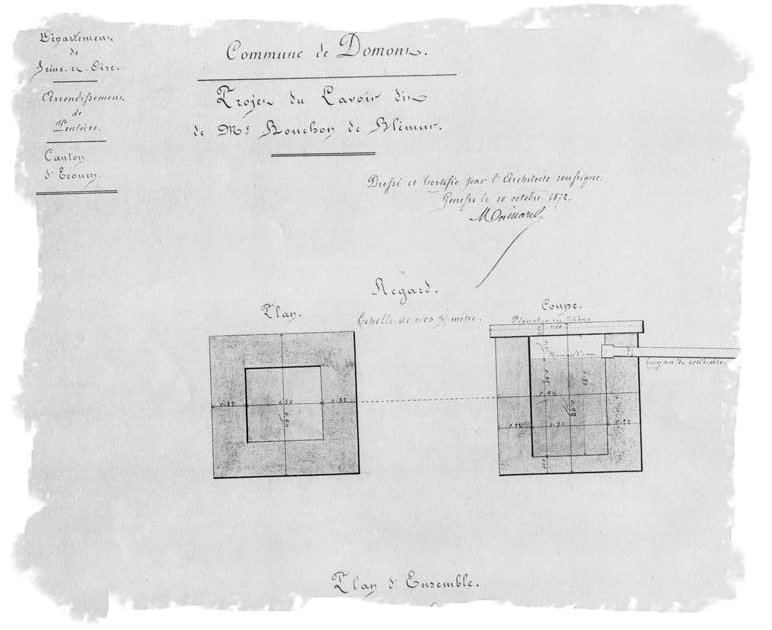 Département
de
Seine-et-Oise.
Arrondissement
de
Pontoise.
Canton
d'Ecouen.
Commune de Domont.
Projet du Lavoir dit
de Mr Bouchon de Blémur.
Dressé et Certifié par l'Architecte soussigné.
Gonesse le 10 octobre 1872.
Regard.
Plan.
Echelle de 0.05 p% mètre.
Coupe.
Plancher en chêne
Niveau d'eau
tuyau de conduite.
0.22
0.50
0.22
0.94
0.22
0.50
0.22
Plan d'Ensemble.